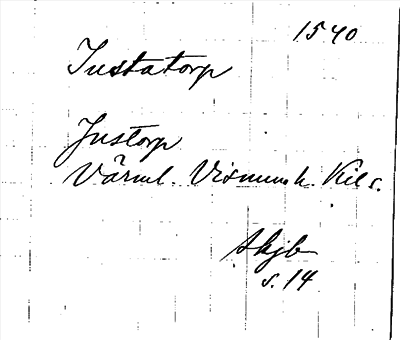 1540
Justatorp
Justorp
Värml. Visnums h. Kil s.
skjb
s. 14